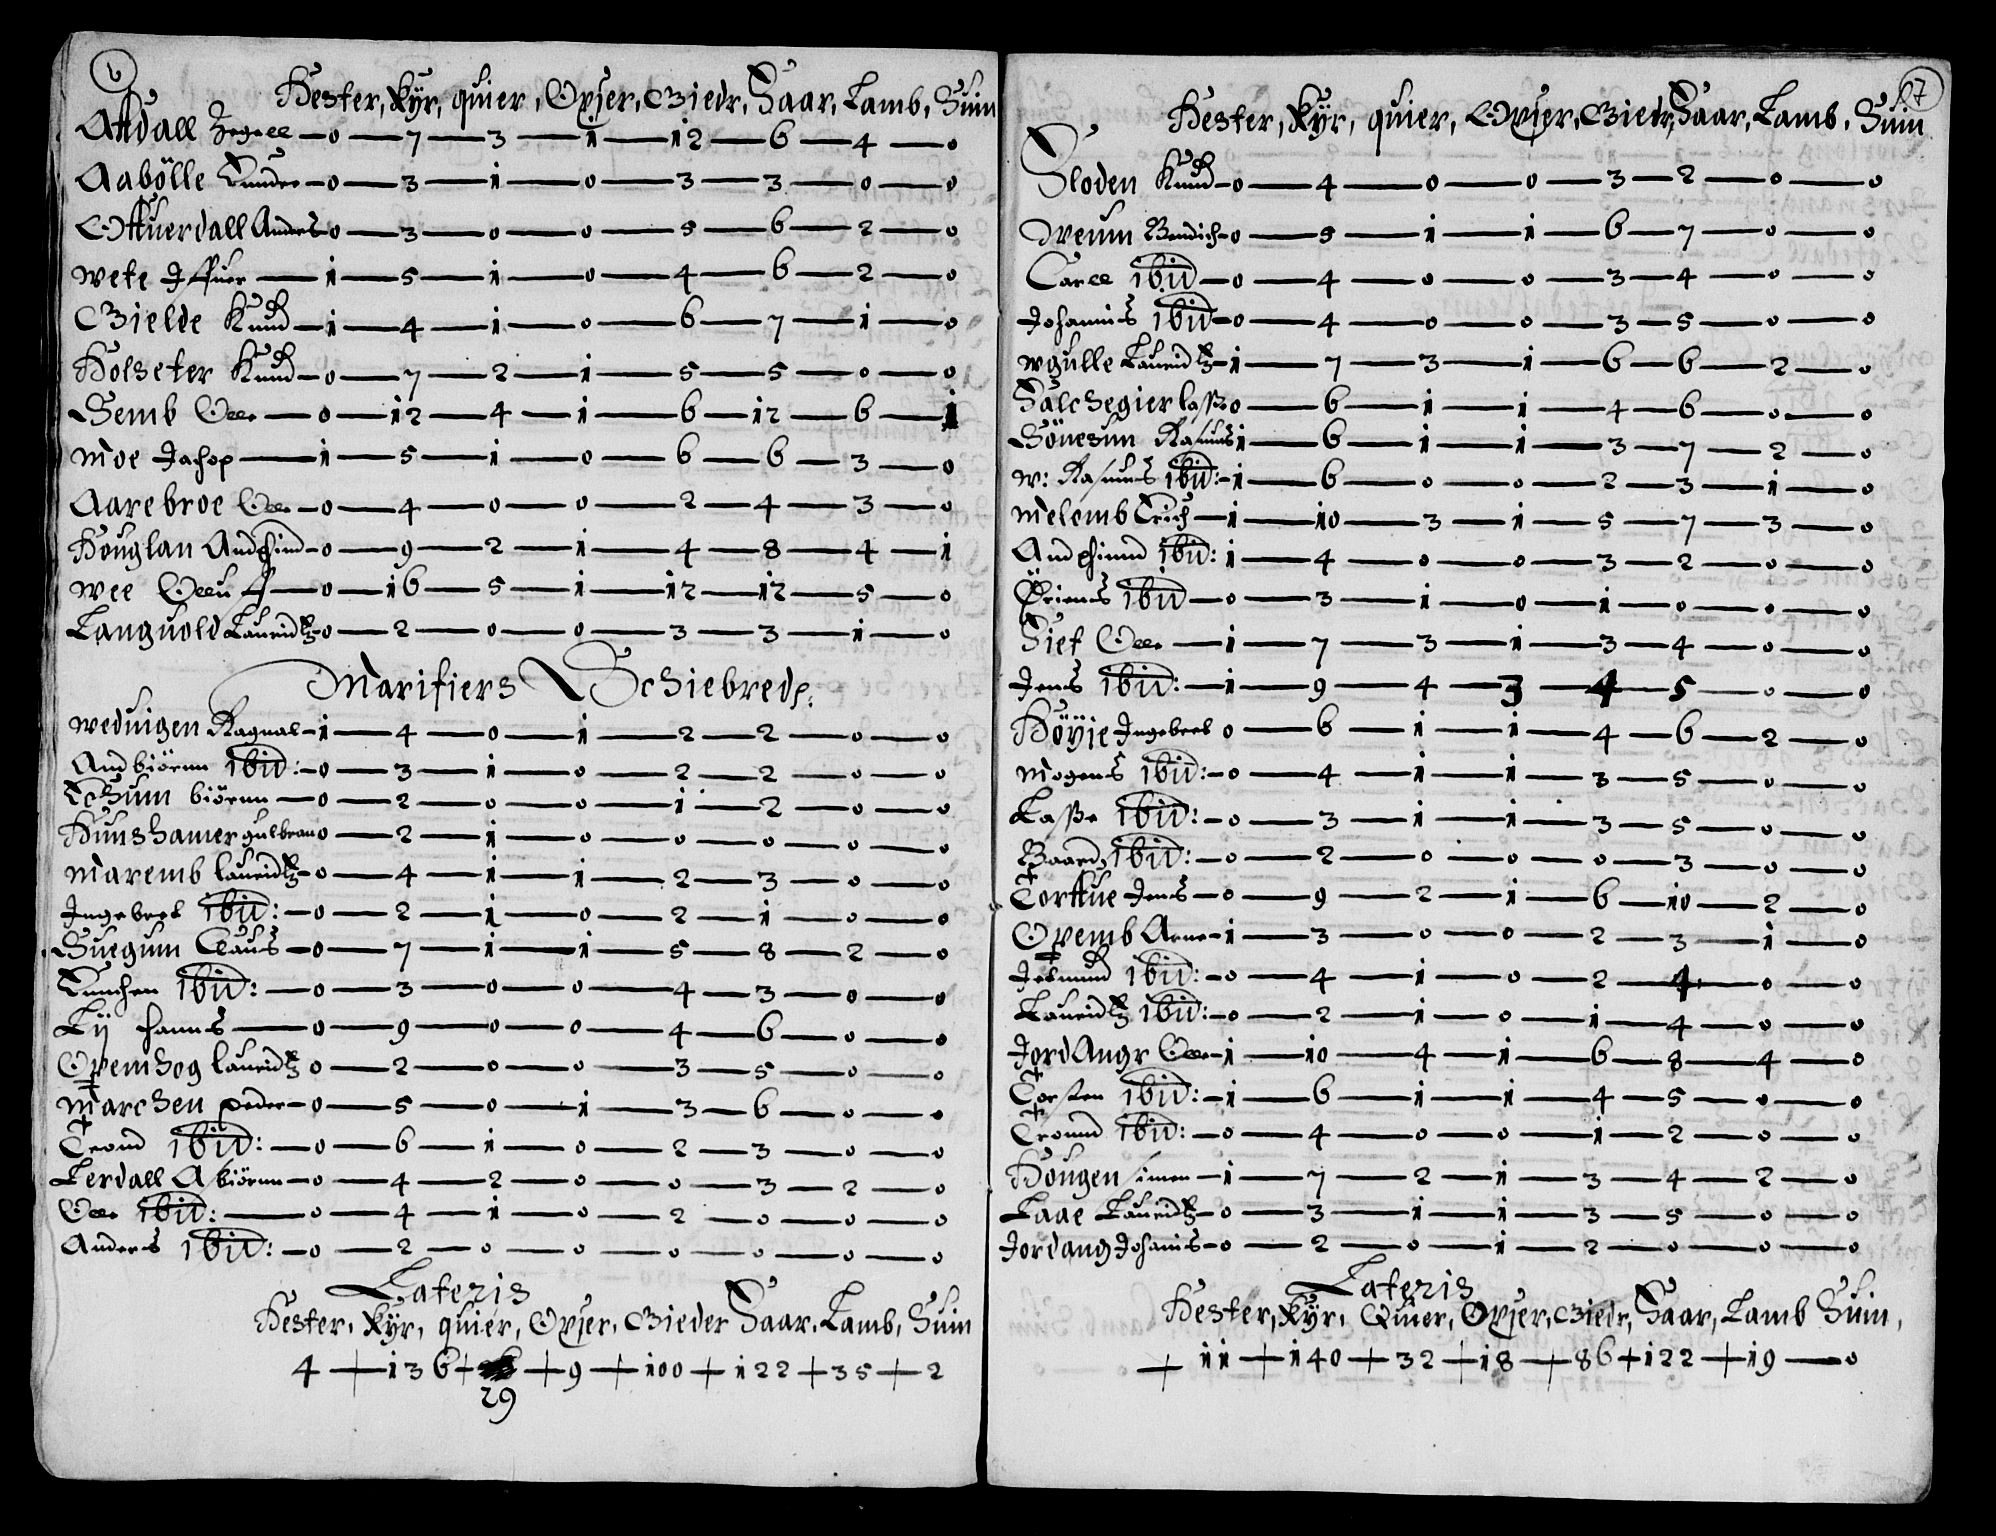 6
Hester, Kyr, quier, Oxser, Gieder, Saar, Lamb, Suin
Attdall — 0 — 7 — 3 — 1 — 12 — 6 — 4 — 0
Aabölle Gunder — 0 — 3 — 1 — 0 — 3 — 3 — 0 — 0
Ottuerdall Anders 0 — 3 — 0 — 0 — 5 — 6 — 2 — 0
wete Iffuer — 1 — 5 — 1 — 0 — 4 — 6 — 2 — 0
Gielde Knud — 1 — 4 — 1 — 0 — 6 — 7 — 1 — 0
Holseter Knud — 0 — 7 — 2 — 1 — 5 — 5 — 0 — 0
Semb Oele — 0 — 12 — 4 — 1 — 6 — 12 — 6 — 1
moe Jachop — 1 — 5 — 1 — 0 — 6 — 6 — 3 — 0
Aarebroe Oele — 0 — 4 — 0 — 0 — 2 — 4 — 3 — 0
Houglan Andfind — 0 — 9 — 2 — 1 — 4 — 8 — 4 — 1
wee Oeluff — 0 — 16 — 5 — 1 — 12 — 12 — 5 — 0
Languold Lauridtz — 0 — 2 — 0 — 0 — 3 — 3 — 1 — 0
Marifiers Schiebrede.
weduigen Ragnal — 1 — 4 — 0 — 1 — 2 — 2 — 0 — 0
Andbiörnn ibid: — 0 — 3 — 1 — 0 — 2 — 2 — 0 — 0
biörnn — 0 — 2 — 0 — 0 — 1 — 2 — 0 — 0
Hunshamer gulbran 0 — 2 — 1 — 0 — 0 — 0 — 0 — 0
maremb lauridtz — 0 — 4 — 1 — 1 — 2 — 3 — 0 — 0
Ingebrel ibid: — 0 — 2 — 1 — 0 — 2 — 1 — 0 — 0
Suegum Claus — 0 — 7 — 1 — 1 — 5 — 8 — 2 — 0
ibid: — 0 — 3 — 0 — 0 — 4 — 3 — 0 — 0
Lij hanns — 0 — 9 — 0 — 0 — 4 — 6 — 0 — 0
Opemhog lauridtz 0 — 2 — 0 — 0 — 3 — 5 — 0 — 0
marchen peder — 0 — 5 — 0 — 1 — 3 — 6 — 0 — 0
Trond ibid: — 0 — 6 — 1 — 0 — 2 — 3 — 0 — 0
Lerdall Asbiörnn — 0 — 4 — 2 — 0 — 0 — 3 — 2 — 0
Oele ibid: — 0 — 4 — 1 — 0 — 2 — 0 — 0 — 0
Anders ibid: — 0 — 2 — 0 — 0 — 0 — 0 — 0 — 0
Lateris
Hester, Kyr, quier, Oxser, Gieder Saar, Lamb, Suin
4 + 136 + + 9 + 100 + 122 + 35 + 2
29
7
Hester, Kyr, quier, Oxser, Giedr, Saar, Lamb, Suin
Sloden Knud — 0 — 4 — 0 — 0 — 3 — 2 — 0 — 0
Dreum Bendich — 0 — 5 — 1 — 1 — 6 — 7 — 0 — 0
Carll ibid — 0 — 4 — 0 — 0 — 3 — 4 — 0 — 0
Johannis ibid — 0 — 4 — 0 — 0 — 3 — 5 — 0 — 0
wgulle Lauridtz — 1 — 7 — 3 — 1 — 6 — 6 — 2 — 0
Salchegier lasse 0 — 6 — 1 — 1 — 4 — 6 — 0 — 0
Sönesun Rasmus 1 — 6 — 1 — 1 — 3 — 7 — 2 — 0
w: Rasmus ibid: — 1 — 6 — 0 — 0 — 2 — 3 — 1 — 0
melemb Erich — 1 — 10 — 3 — 1 — 5 — 7 — 3 — 0
Andphinnd ibid: 1 — 4 — 0 — 0 — 3 — 2 — 0 — 0
ibid — 0 — 3 — 1 — 0 — 1 — 0 — 0 — 0
Sief Oele — 1 — 7 — 3 — 1 — 3 — 4 — 0 — 0
Jens ibid: — 1 — 9 — 4 — 3 — 4 — 5 — 0 — 0
Höyie Ingebrel 0 — 6 — 1 — 1 — 4 — 6 — 2 — 0
Mogens ibid: — 0 — 4 — 1 — 1 — 3 — 5 — 0 — 0
Lasse ibid: — 0 — 3 — 1 — 1 — 3 — 5 — 0 — 0
Baard ibid: — 0 — 2 — 0 — 0 — 0 — 3 — 0 — 0
Torttue Jens — 0 — 9 — 2 — 1 — 6 — 10 — 2 — 0
Opemb Arne — 1 — 3 — 0 — 0 — 2 — 3 — 1 — 0
ibid: — 0 — 4 — 1 — 0 — 2 — 4 — 0 — 0
Lauridtz ibid: — 0 — 2 — 1 — 0 — 1 — 4 — 0 — 0
JordAngr Oele — 1 — 10 — 4 — 1 — 6 — 8 — 4 — 0
Torsten ibid: — 1 — 6 — 1 — 1 — 4 — 5 — 0 — 0
Tronnd ibid: — 0 — 4 — 0 — 0 — 1 — 2 — 0 — 0
Hougen simen — 1 — 7 — 2 — 1 — 3 — 4 — 2 — 0
Laae Lauridtz — 0 — 3 — 1 — 1 — 3 — 5 — 0 — 0
Jordang Johanis — 0 — 2 — 0 — 1 — 2 — 0 — 0 — 0
Lateris
Hester, Kyr, Quier, Oxser, Giedr, Saar, Lamb Suin,
+ 11 + 140 + 32 + 18 + 86 + 122 + 19 — 0